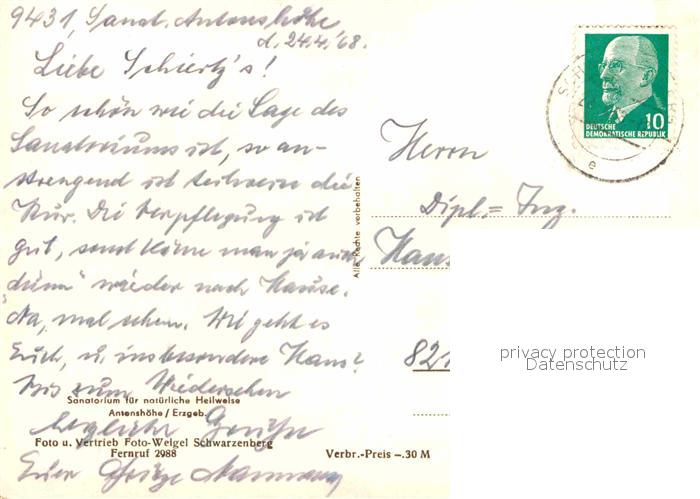 9431, Sanat. Antonshöhe
d. 24.4.'68.
Liebe Schiertz's!
So schön wie die Lage des
Sanatoriums ist, so an-
strengend ist teilweise die
Kur. Die Verpflegung ist
gut, sonst käme man ja auch
"dünn" wieder nach Hause.
Na, mal sehen. Wie geht es
Euch, u. insbesondere Hans?
Bis zum Wiedersehen
herzliche Grüße
Euer
Sanatorium für natürliche Heilweise
Antonshöhe / Erzgeb.
Foto u. Vertrieb Foto-Weigel Schwarzenberg
Fernruf 2988
Verbr.-Preis –.30 M
Alle Rechte vorbehalten
Herrn
Dipl.= Ing.
Hans
821
DEUTSCHE
DEMOKRATISCHE REPUBLIK
10
e
privacy protection
Datenschutz